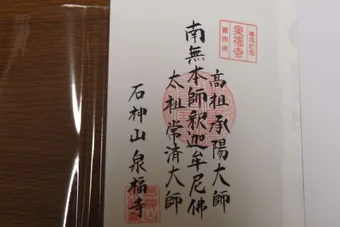 高祖承陽大師
南無本師釈迦牟尼佛
太祖常済大師
石神山泉福寺
泉福寺